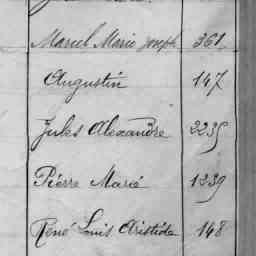 Marcel Marie Joseph 361
Augustin 147
Jules Alexandre 2235
Pierre Marie 1239
René Louis Aristide 148